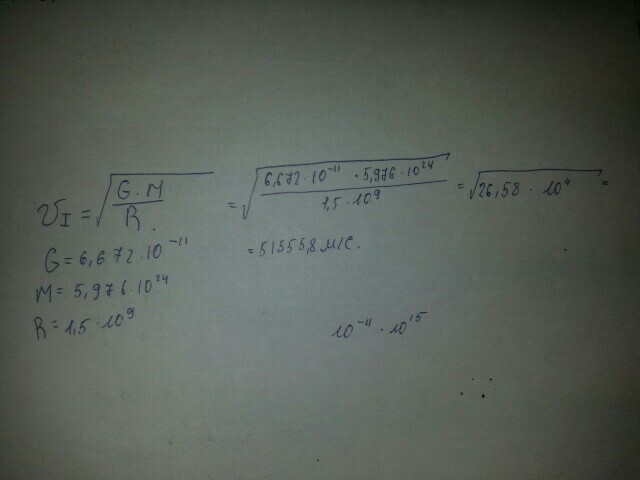 v_I = √(G·M / R.) = √(6,672·10⁻¹¹ · 5,976·10²⁴ / 1,5·10⁹) = √(26,58 · 10⁴) =
G = 6,672·10⁻¹¹ = 51555,8 м/с.
M = 5,976·10²⁴
R = 1,5·10⁹ 10⁻¹¹ · 10¹⁵